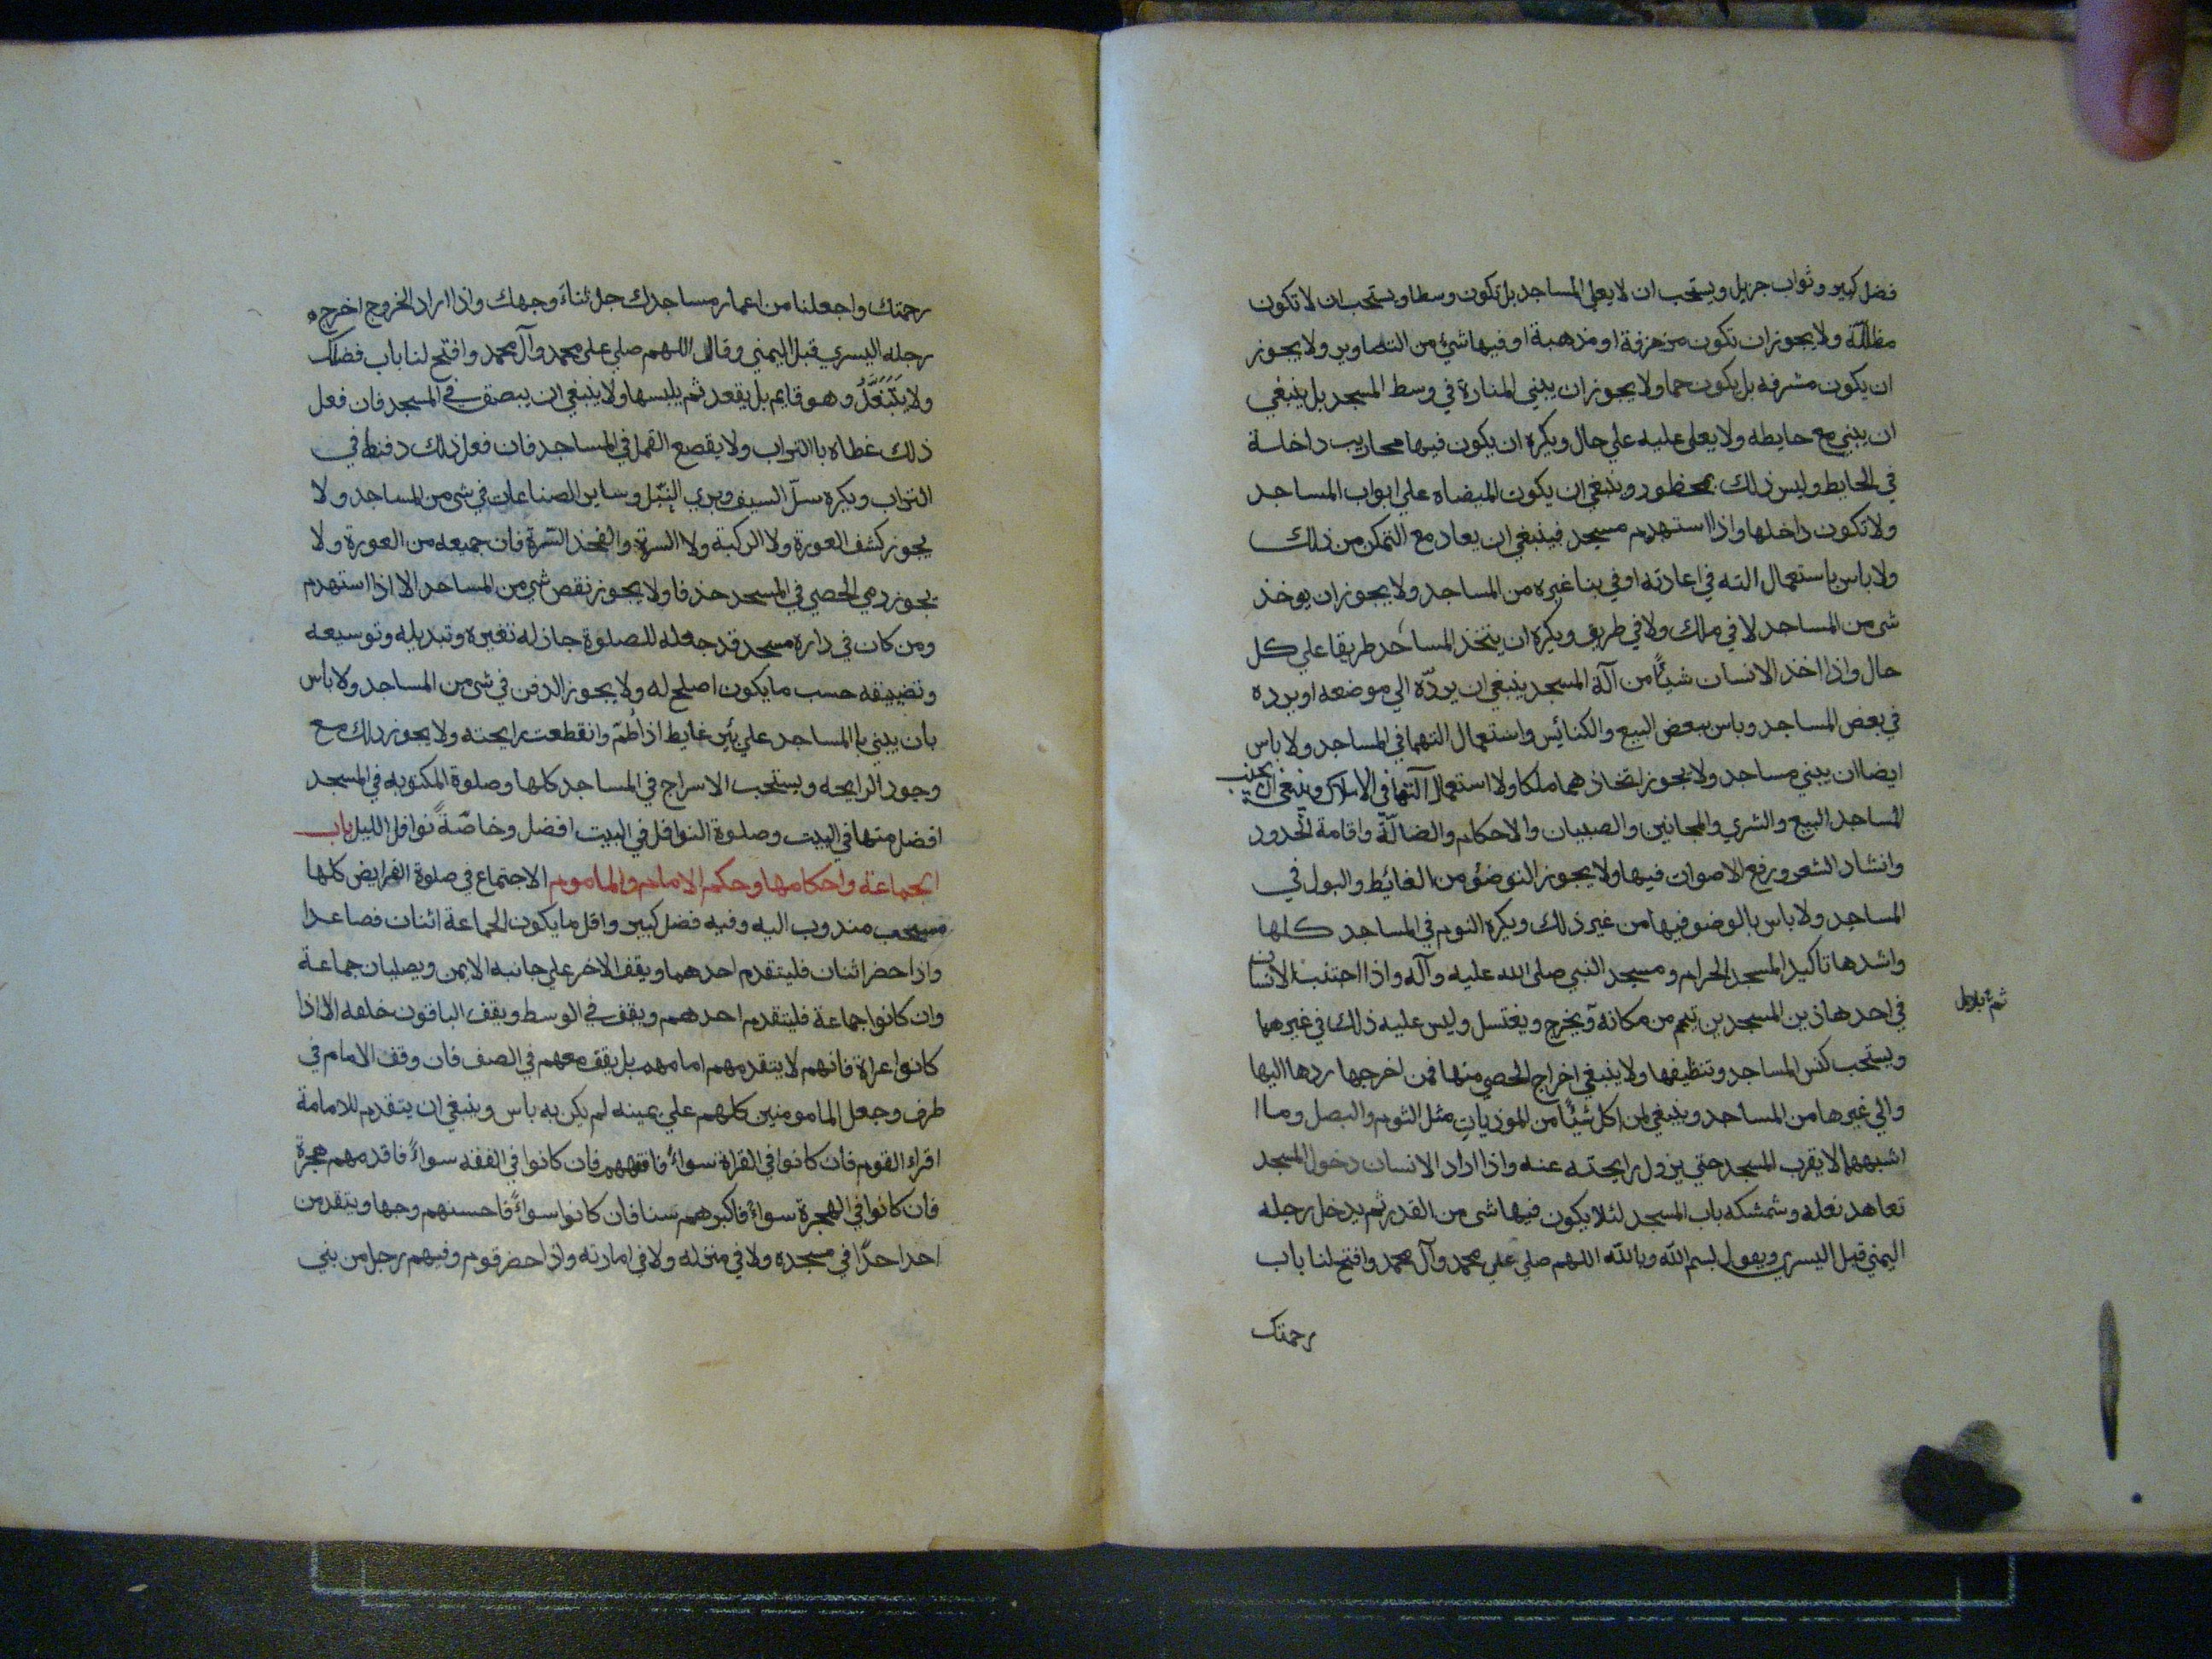 فضل كبير وثواب جزيل ويستحب ان لا يعلي المساجد بل تكون وسطا ويستحب ان لا تكون
مظللّة ولا يجوز ان تكون مزخرفة او مذهبة او فيها شئ من التصاوير ولا يجوز
ان يكون مشرفه بل يكون جما ولا يجوز ان يبني المنارة في وسط المسجد بل ينبغي
ان يبني مع حايطه ولا يعلي عليه علي حال ويكره ان يكون فيها محاريب داخلة
في الحايط وليس ذلك بمحظور وينبغي ان يكون الميضاه علي ابواب المساجد
ولا تكون داخلها واذا استهدم مسجد فينبغي ان يعاد مع التمكن من ذلك
ولا باس باستعمال الته في اعادته او في بنا غيره من المساجد ولا يجوز ان يوخذ
شي من المساجد لا في ملك ولا في طريق ويكره ان يتخذ المساجد طريقا علي كل
حال واذا اخذ الانسان شيئًا من آلة المسجد ينبغي ان يردّه الي موضعه او يرده
في بعض المساجد وباس ببعض البيع والكنائس واستعمال التهما في المساجد ولا باس
ايضا ان يبني مساجد ولا يجوز اتخاذهما ملكا ولا استعمال آلتها في الاملاك وينبغي ان يجنب
المساجد البيع والشري والمجانين والصبيان والاحكام والضالّة واقامة الحدود
وانشاد الشعر ورفع الاصوات فيها ولا يجوز التوضئ من الغائط والبول في
المساجد ولا باس بالوضو فيها من غير ذلك ويكره النوم في المساجد كلها
واشدها تاكيدا المسجد الحرام ومسجد النبي صلي الله عليه وآله واذا احتنب الانسان
في احد هاذين المسجدين تيمم من مكانه ويخرج ويغتسل وليس عليه ذلك في غيرهما
ويستحب كنس المساجد وتنظيفها ولا ينبغي اخراج الحصي منها فمن اخرجها ردها اليها
والي غيرها من المساجد وينبغي لمن اكل شيئًا من الموذيات مثل الثوم والبصل وما ا
اشبههما لا يقرب المسجد حتي يزول رايحته عنه واذا اراد الانسان دخول المسجد
تعاهد نعله وشمشكه باب المسجد لئلا يكون فيها شي من القذر ثم يدخل رجله
اليمني قبل اليسري ويقول بسم الله وبالله اللهم صلي علي محمد وآل محمد وافتح لنا باب
رحمتك
رحمتك واجعلنا من اعمار مساجدك جل ثناء وجهك واذا اراد الخروج اخرج
رجله اليسري قبل اليمني وقال اللهم صلي علي محمد وآل محمد وافتح لنا باب فضلك
ولا يتنعّل وهو قايم بل يقعد ثم يلبسها ولا ينبغي ان يبصق في المسجد فان فعل
ذلك غطاه باالتراب ولا يقصع القمل في المساجد فان فعل ذلك دفنها في
التراب ويكره سلّ السيف وبري النبّل وساير الصناعات في شي من المساجد ولا
يجوز كشف العورة ولا الركبة ولا السرة والفخذ السرة فان جميعه من العورة ولا
يجوز رمي الحصي في المسجد خذفا ولا يجوز نقص شي من المساجد الا اذا استهدم
ومن كان في داره مسجد قد جعله للصلوة جاز له تغيره وتبديله وتوسيعه
وتضييقه حسب ما يكون اصلح له ولا يجوز الدفن في شي من المساجد ولا باس
بان يبني باالمساجد علي بئر غايط اذا طُمّ وانقطعت رايحته ولا يجوز ذلك مع
وجود الرايحه ويستحب الاسراج في المساجد كلها وصلوة المكتوبه في المسجد
افضل منها في البيت وصلوة النوافل في البيت افضل وخاصّةً نوافل الليل باب
الجماعة واحكامها وحكم الامام والماموم الاجتماع في صلوة الفرايض كلها
مسيحب مندوب اليه وفيه فضل كبير واقل ما يكون الجماعة اثنان فصاعدا
واذا حضر اثنان فليتقدم احدهما ويقف الاخر علي جانبه الايمن ويصليان جماعة
وان كانوا جماعة فليتقدم احدهم ويقف في الوسط ويقف الباقون خلفه الا اذا
كانوا عراة فانهم لا يتقدمهم امامهم بل يقف معهم في الصف فان وقف الامام في
طرف وجعل المامومنين كلهم علي يمينه لم يكن به باس وينبغي ان يتقدم للامامة
اقراء القوم فان كانوا في القراة سواءً فافقههم فان كانوا في الفقه سواءً فاقدمهم هجرة
فان كانوا في الهجرة سواءً فاكبرهم سنا فان كانوا سواءً فاحسنهم وجها ويتقدمن
احد احدًا في مسجده ولا في منزله ولا في امارته واذا حضر قوم وفيهم رجل من بني